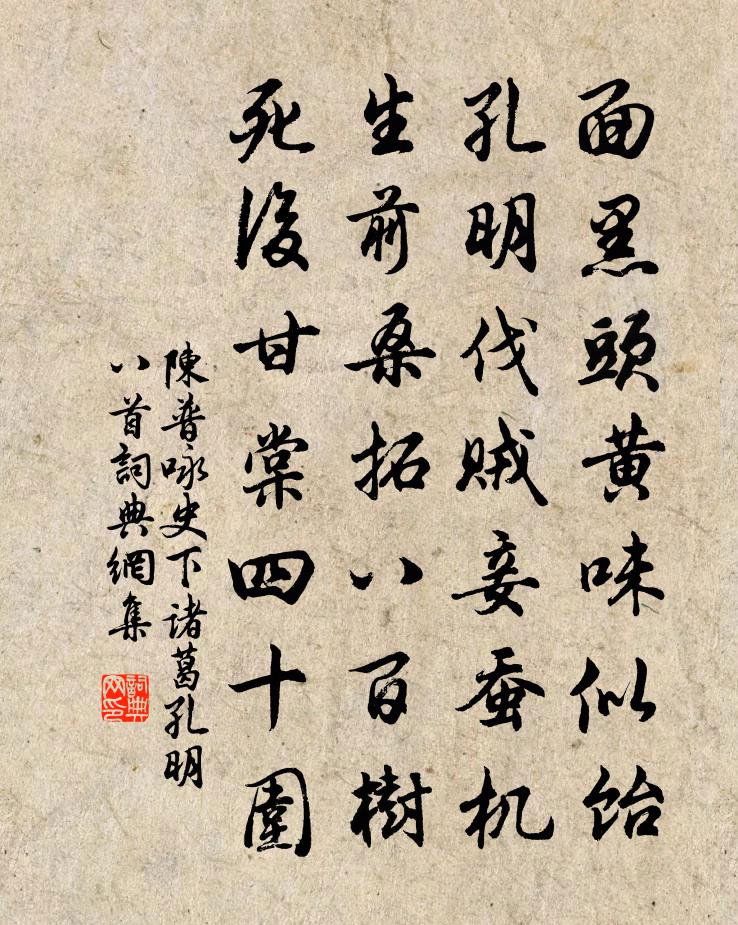 面黑頭黄味似飴
孔明伐賊妾蚕机
生前桑拓八百樹
死後甘棠四十圍
陳普咏史下諸葛孔明
八首詞典網集
詞典网印